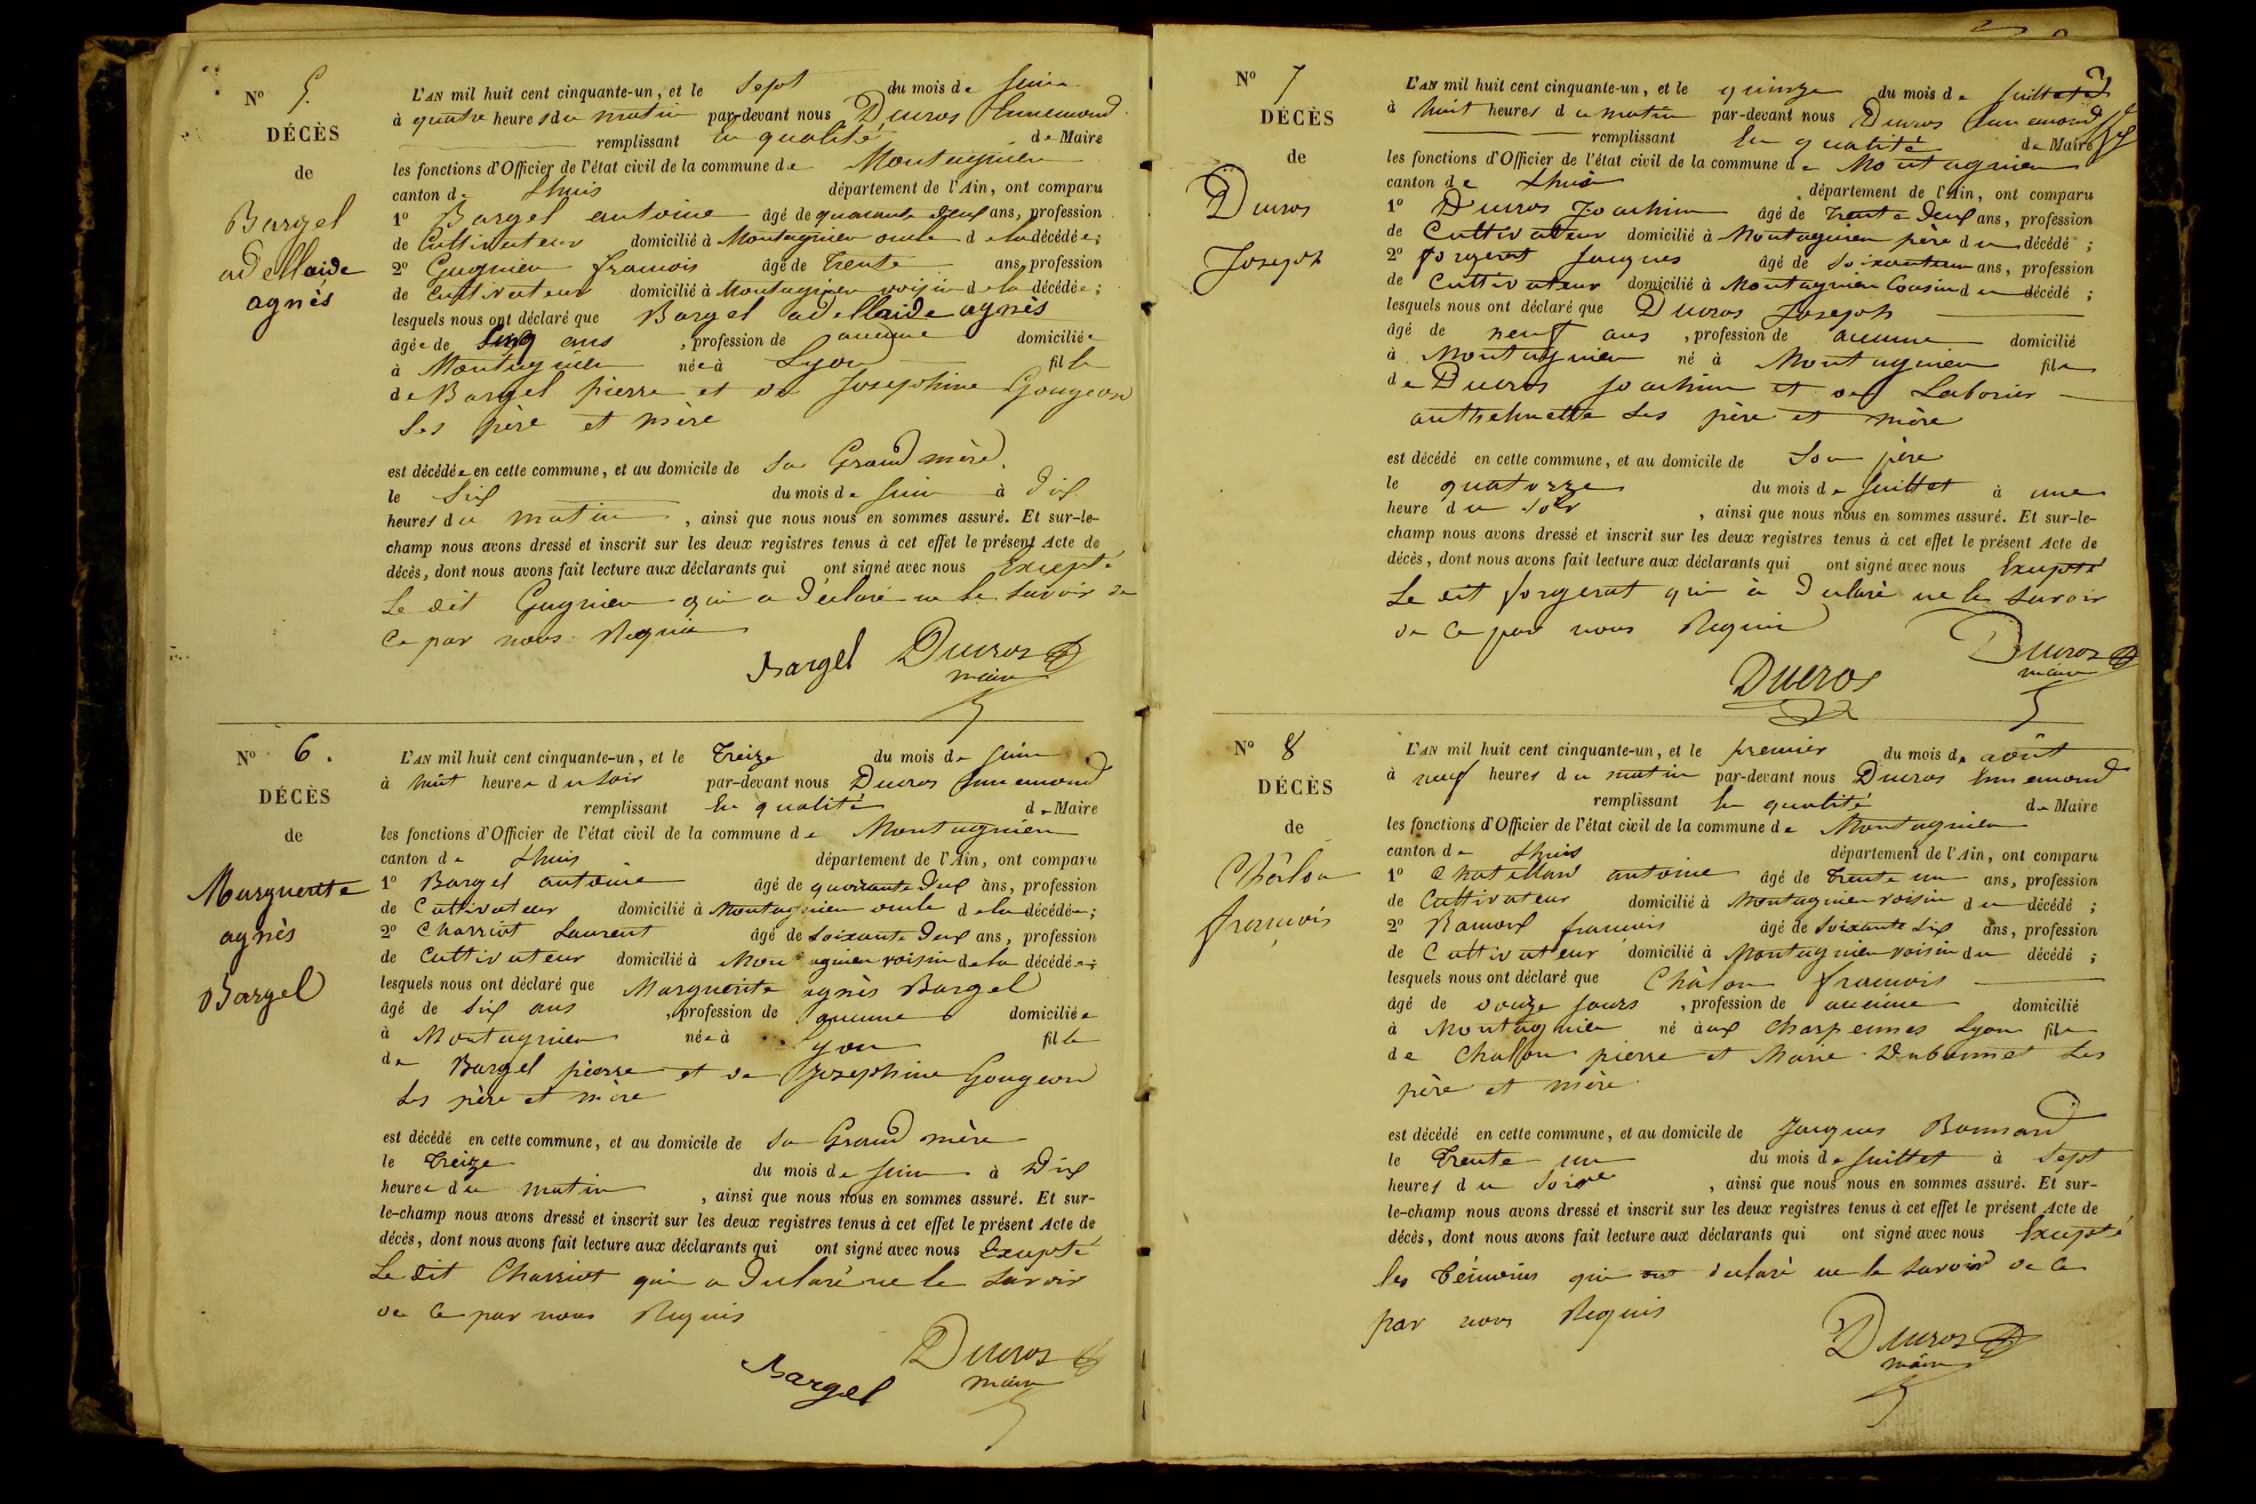 N° 5.
DÉCÈS
de
Bargel
adellaide
agnès
L'AN mil huit cent cinquante-un, et le Sept du mois de Juin
à quatre heures du matin par-devant nous Ducros Ennemond
remplissant en qualité de Maire
les fonctions d'Officier de l'état civil de la commune de Montagnieu
canton de Lhuis département de l'Ain, ont comparu
1° Bargel antoine âgé de quarante deux ans, profession
de Cultivateur domicilié à Montagnieu oncle de la décédée;
2° Gugnieu francois âgé de trente ans, profession
de cultivateur domicilié à Montagnieu voisin de la décédée;
lesquels nous ont déclaré que Bargel adellaide agnès
âgée de cinq ans, profession de aucune domiciliée
à Montagnieu née à Lyon fille
de Bargel pierre et de Josephine Gougeon
Ses père et mère
est décédée en cette commune, et au domicile de Sa Grand mère
le Six du mois de Juin à dix
heures du matin, ainsi que nous nous en sommes assuré. Et sur-le-
champ nous avons dressé et inscrit sur les deux registres tenus à cet effet le présent Acte de
décès, dont nous avons fait lecture aux déclarants qui ont signé avec nous Excepté
Le dit Gugnieu qui a déclaré ne le Savoir de
Ce par nous Requis
Bargel Ducros
maire
N° 6.
DÉCÈS
de
Marguerite
agnès
Bargel
L'AN mil huit cent cinquante-un, et le Treize du mois de Juin
à huit heures du soir par-devant nous Ducros Ennemond
remplissant En qualité de Maire
les fonctions d'Officier de l'état civil de la commune de Montagnieu
canton de Lhuis département de l'Ain, ont comparu
1° Bargel antoine âgé de quarante deux ans, profession
de Cultivateur domicilié à Montagnieu oncle de la décédée;
2° Charriot Laurent âgé de Soixante deux ans, profession
de Cultivateur domicilié à Montagnieu voisin de la décédée;
lesquels nous ont déclaré que Marguerite agnès Bargel
âgé de Six ans, profession de aucune domiciliée
à Montagnieu née à Lyon fille
de Bargel pierre et de Josephine Gougeon
Ses père et mère
est décédé en cette commune, et au domicile de Sa Grand mère
le Treize du mois de Juin à Dix
heures du matin, ainsi que nous nous en sommes assuré. Et sur-
le-champ nous avons dressé et inscrit sur les deux registres tenus à cet effet le présent Acte de
décès, dont nous avons fait lecture aux déclarants qui ont signé avec nous Excepté
Le dit Charriot qui a déclaré ne le Savoir
de Ce par nous Requis
Bargel Ducros
maire
N° 7
DÉCÈS
de
Ducros
Joseph
L'AN mil huit cent cinquante-un, et le quinze du mois de Juillet
à huit heures du matin par-devant nous Ducros Ennemond
remplissant En qualité de Maire
les fonctions d'Officier de l'état civil de la commune de Montagnieu
canton de Lhuis département de l'Ain, ont comparu
1° Ducros Joachim âgé de trente deux ans, profession
de Cultivateur domicilié à Montagnieu père du décédé;
2° forgerat Jacques âgé de Soixante un ans, profession
de Cultivateur domicilié à Montagnieu Cousin du décédé;
lesquels nous ont déclaré que Ducros Joseph
âgé de neuf ans, profession de aucune domicilié
à Montagnieu né à Montagnieu fils
de Ducros Joachim et de Laborier
anthelmette Ses père et mère
est décédé en cette commune, et au domicile de Son père
le quatorze du mois de Juillet à une
heure du Soir, ainsi que nous nous en sommes assuré. Et sur-le-
champ nous avons dressé et inscrit sur les deux registres tenus à cet effet le présent Acte de
décès, dont nous avons fait lecture aux déclarants qui ont signé avec nous Excepté
Le dit forgerat qui à déclaré ne le Savoir
de Ce par nous Requis
Ducros Ducros
maire
N° 8
DÉCÈS
de
Châlon
françois
L'AN mil huit cent cinquante-un, et le premier du mois de août
à neuf heures du matin par-devant nous Ducros Ennemond
remplissant En qualité de Maire
les fonctions d'Officier de l'état civil de la commune de Montagnieu
canton de Lhuis département de l'Ain, ont comparu
1° Chatillon antoine âgé de trente un ans, profession
de Cultivateur domicilié à Montagnieu voisin du décédé;
2° francois âgé de Soixante Six ans, profession
de Cultivateur domicilié à Montagnieu voisin du décédé;
lesquels nous ont déclaré que Châlon francois
âgé de douze jours, profession de aucune domicilié
à Montagnieu né aux Charpennes Lyon fils
de Chalon pierre et Marie Dubonnet Ses
père et mère
est décédé en cette commune, et au domicile de Jacques Bonnard
le Trente un du mois de Juillet à Sept
heures du Soir, ainsi que nous nous en sommes assuré. Et sur-
le-champ nous avons dressé et inscrit sur les deux registres tenus à cet effet le présent Acte de
décès, dont nous avons fait lecture aux déclarants qui ont signé avec nous Excepté
les témoins qui ont déclaré ne le Savoir de Ce
par nous Requis
Ducros
maire